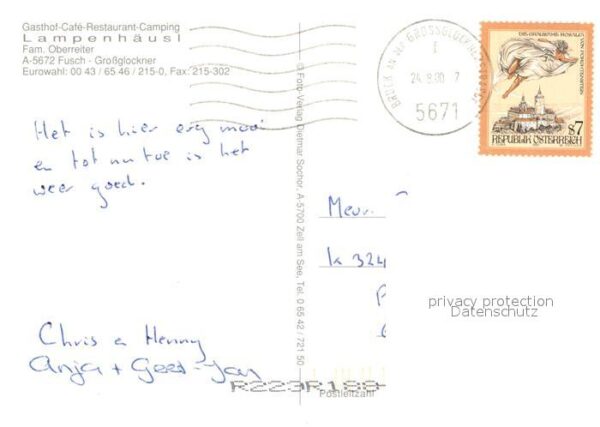 Gasthof-Café-Restaurant-Camping
Lampenhäusl
Fam. Oberreiter
A-5672 Fusch - Großglockner
Eurowahl: 00 43 / 65 46 / 215-0, Fax: 215-302
Het is hier erg mooi
en tot nu toe is het
weer goed.
Chris en Henny
Anja + Geert-Jan
© Foto-Verlag Dietmar Sochor, A-5700 Zell am See, Tel. 0 65 42 / 721 50
BRUCK AN DER GROSSGLOCKNERSTRASSE
5671
REPUBLIK ÖSTERREICH
S7
Mevr.
K 324
privacy protection
Datenschutz
R223R188
Postleitzahl